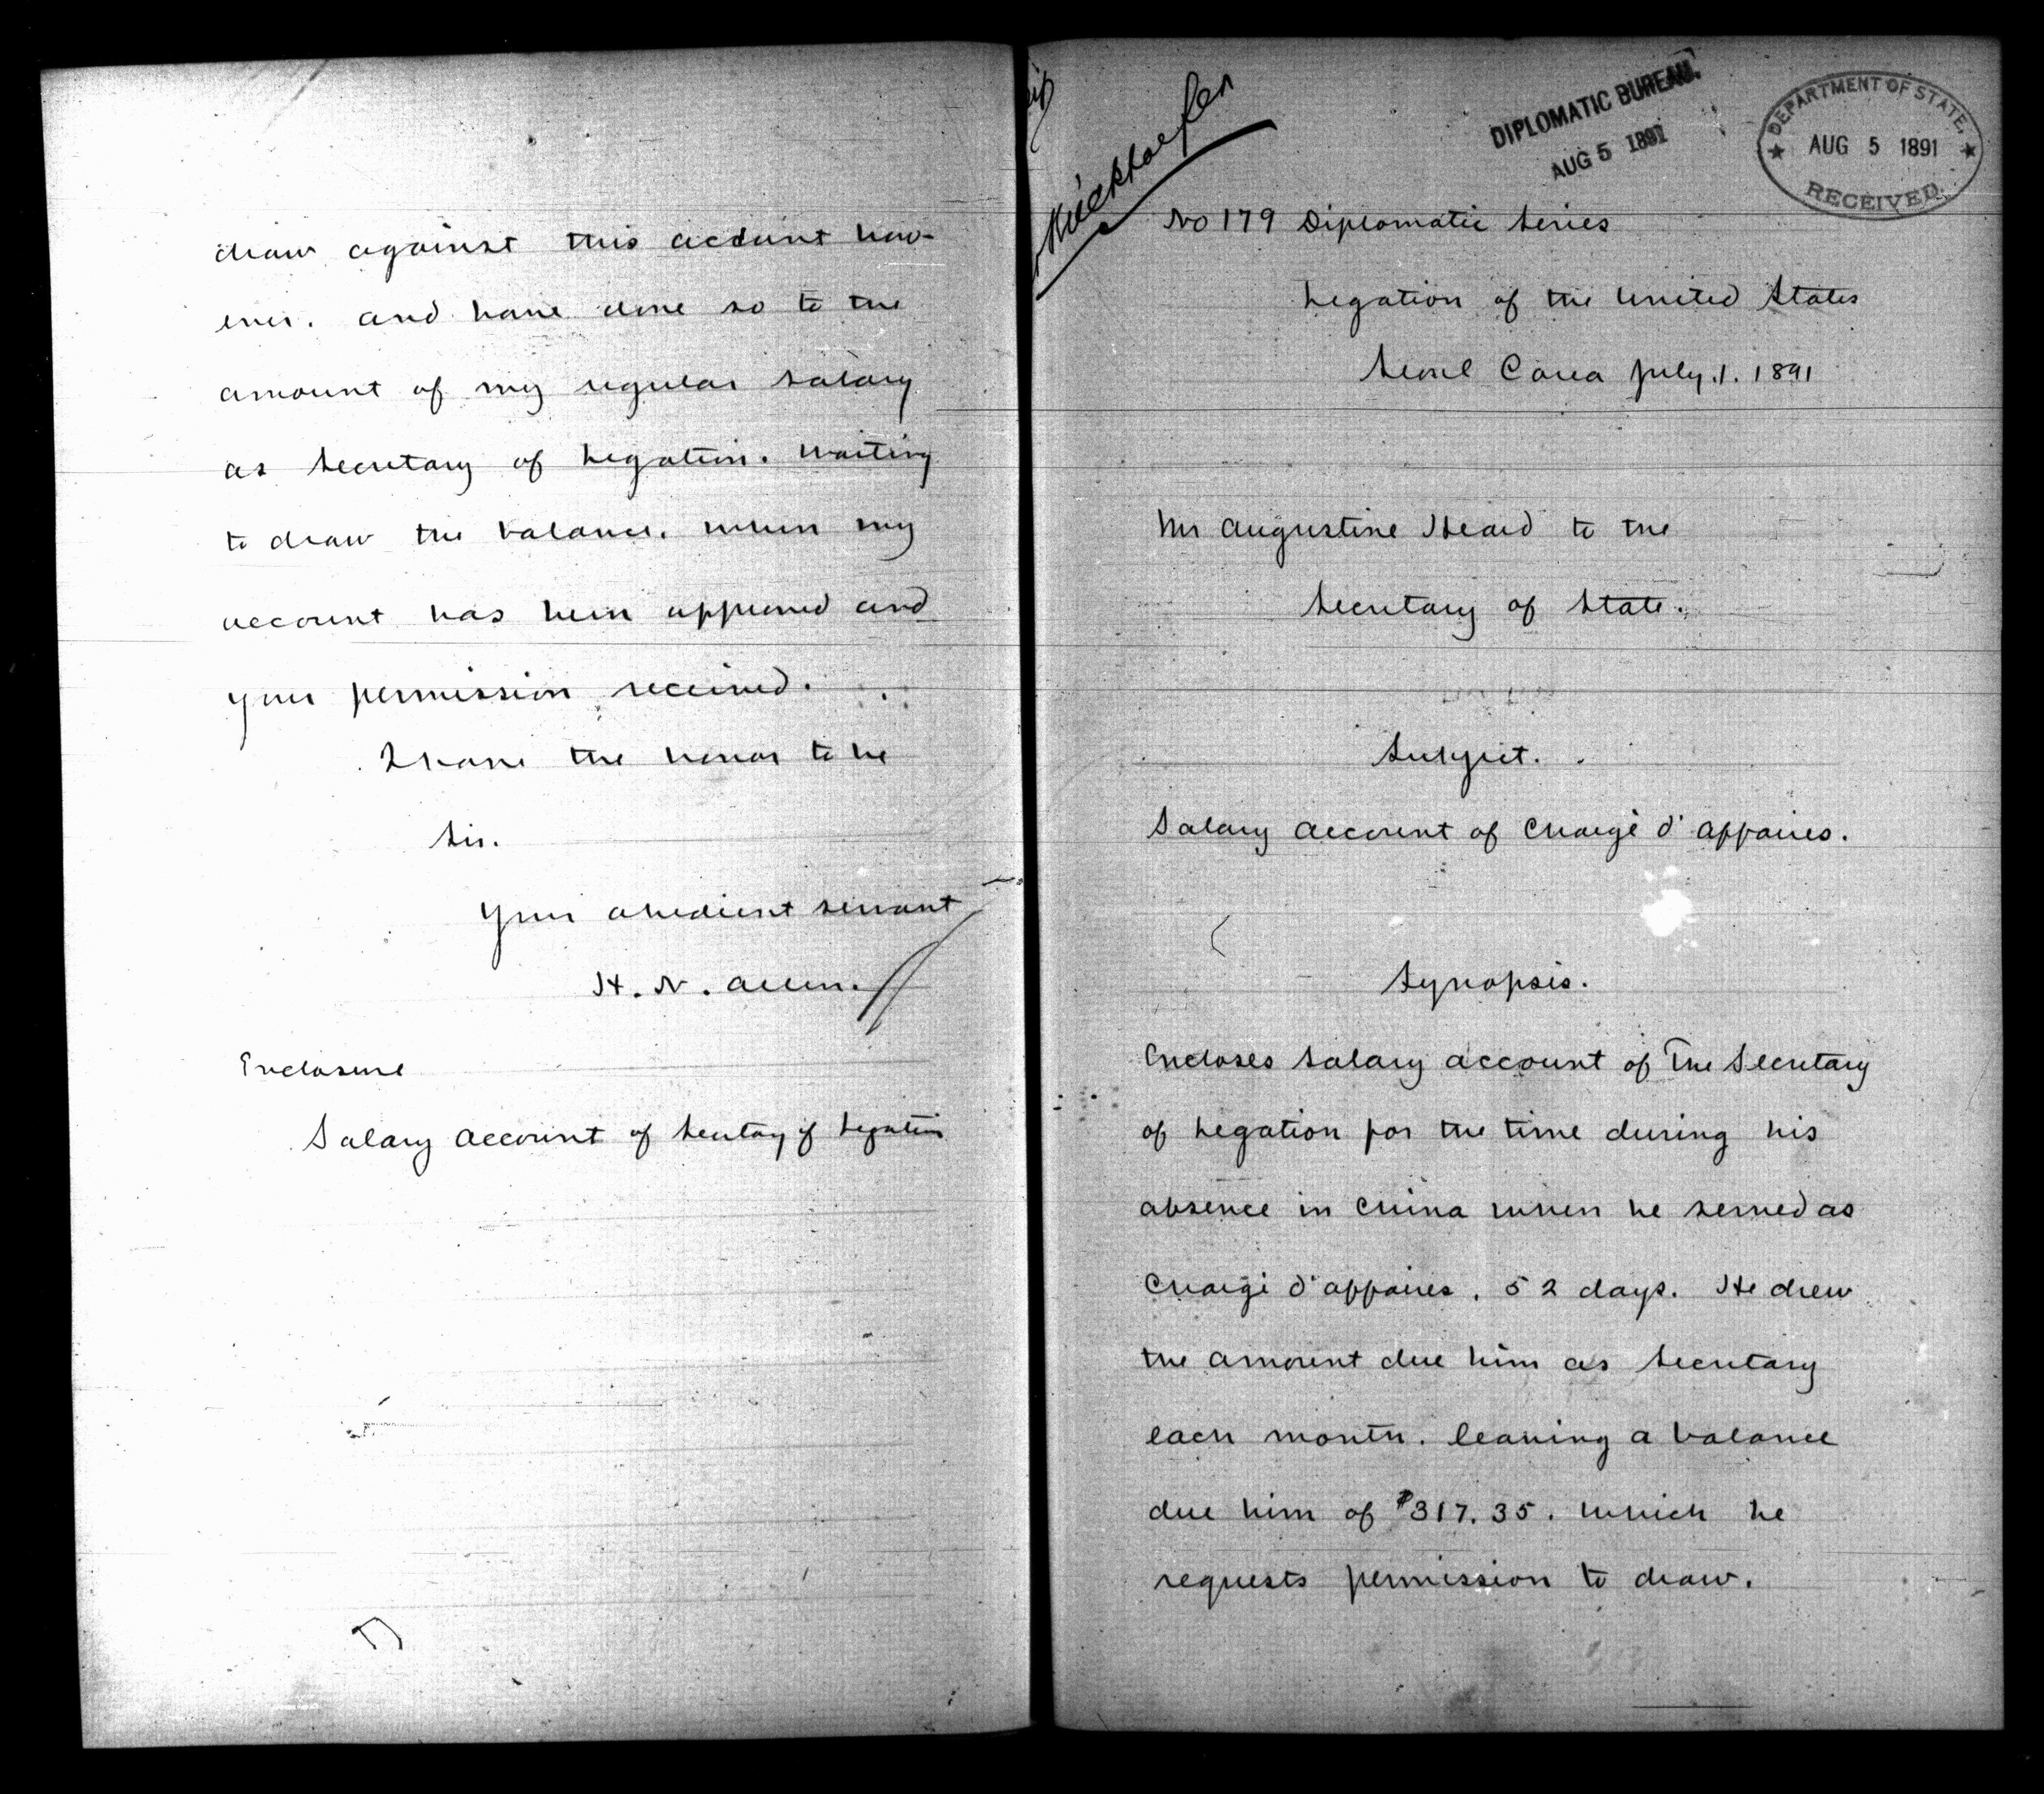 draw against this account how-
ever. and have done so to the
amount of my regular salary
as Secretary of Legation. waiting
to draw the balance. when my
account has been approved and
your permission received.
I have the honor to be
Sir.
Your obedient servant
H. N. Allen.
Enclosure
Salary account of Secretary of Legation
DIPLOMATIC BUREAU.
AUG 5 1891
DEPARTMENT OF STATE,
AUG 5 1891
RECEIVED.
No 179 Diplomatic Series
Legation of the United States
Seoul Corea July. 1. 1891
Mr Augustine Heard to the
Secretary of State.
Subject.
Salary account of Chargé d'affaires.
Synopsis.
Encloses Salary account of The Secretary
of Legation for the time during his
absence in China when he served as
Chargé d'affaires. 52 days. He drew
the amount due him as Secretary
each month. leaving a balance
due him of $317.35. which he
requests permission to draw.